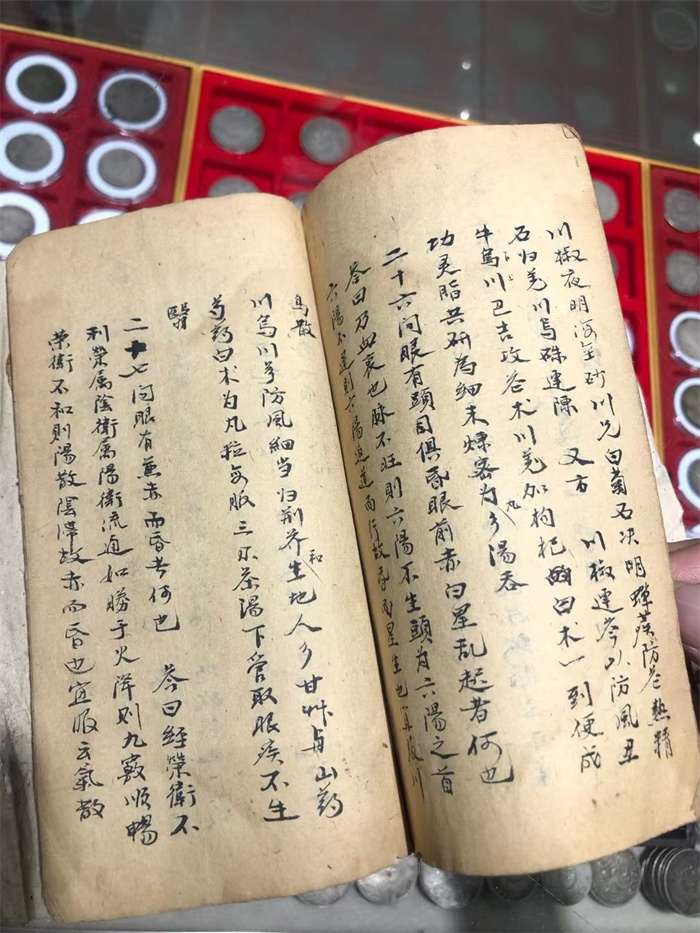 川椒夜明海金砂川芎白菊石决明蟬蒺防芷熱精
石归羌川烏硃連陳 又方 川椒連岑以防風丑
牛烏川巴吉攻苍术川羌加枸杞的白术一到便成
功灵脂共研為細末煉蜜為丸湯吞
二十六问眼有頭目俱昏眼前赤白星乱起者何也
答曰乃血衰也脉不旺則六陽不生頭為六陽之首
六陽不進則六陽退進而行故昏而星生也宜服川
烏散
川烏川芎防風細当归荆芥生和地人参甘草与山药
芍药白术為凡粒每服三錢茶湯下管取眼疾不生
翳
二十七问眼有蒸赤而昏者何也 答曰經榮衛不
利榮属陰衛属陽衛流通如勝于火降則九竅順暢
榮衛不和則陽散陰滞故赤而昏也宜服云氣散